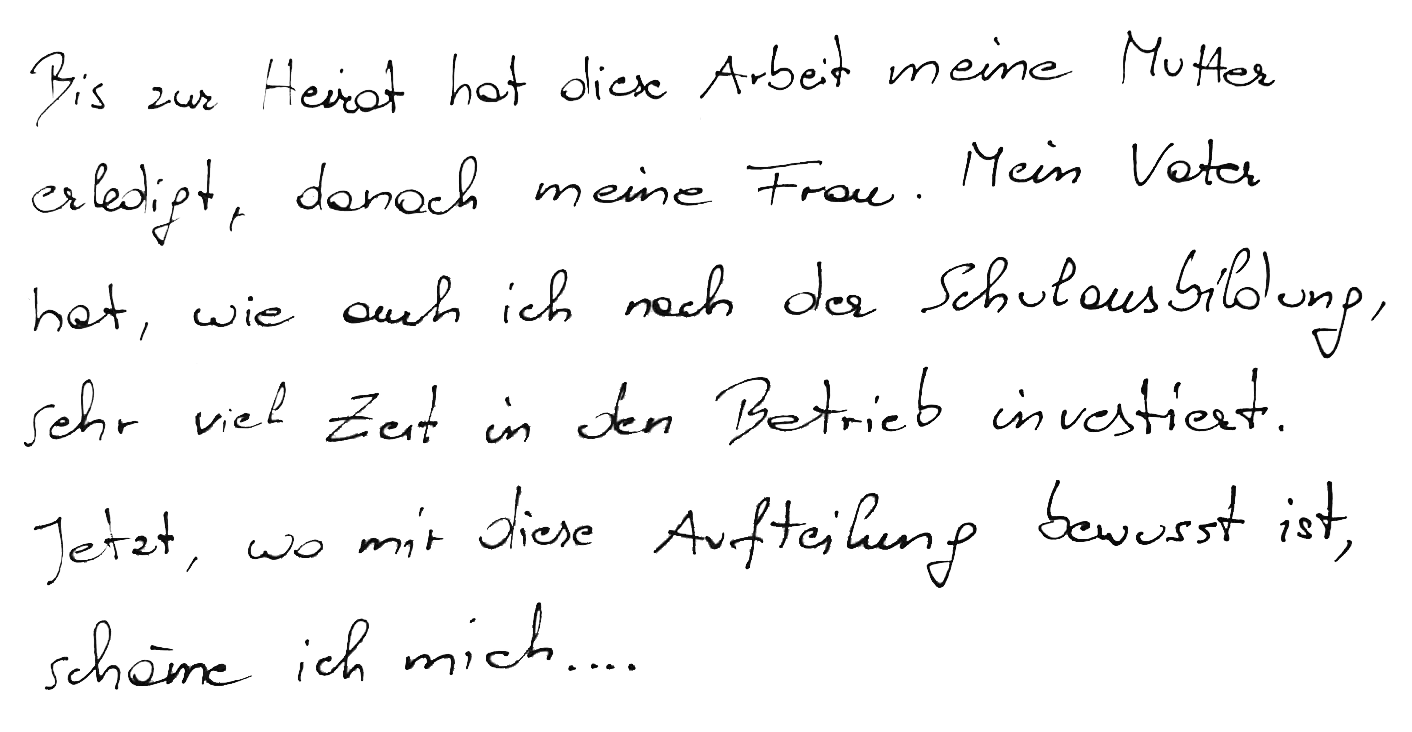 Bis zur Heirat hat diese Arbeit meine Mutter
erledigt, danach meine Frau. Mein Vater
hat, wie auch ich nach der Schulausbildung,
sehr viel Zeit in den Betrieb investiert.
Jetzt, wo mir diese Aufteilung bewusst ist,
schäme ich mich....